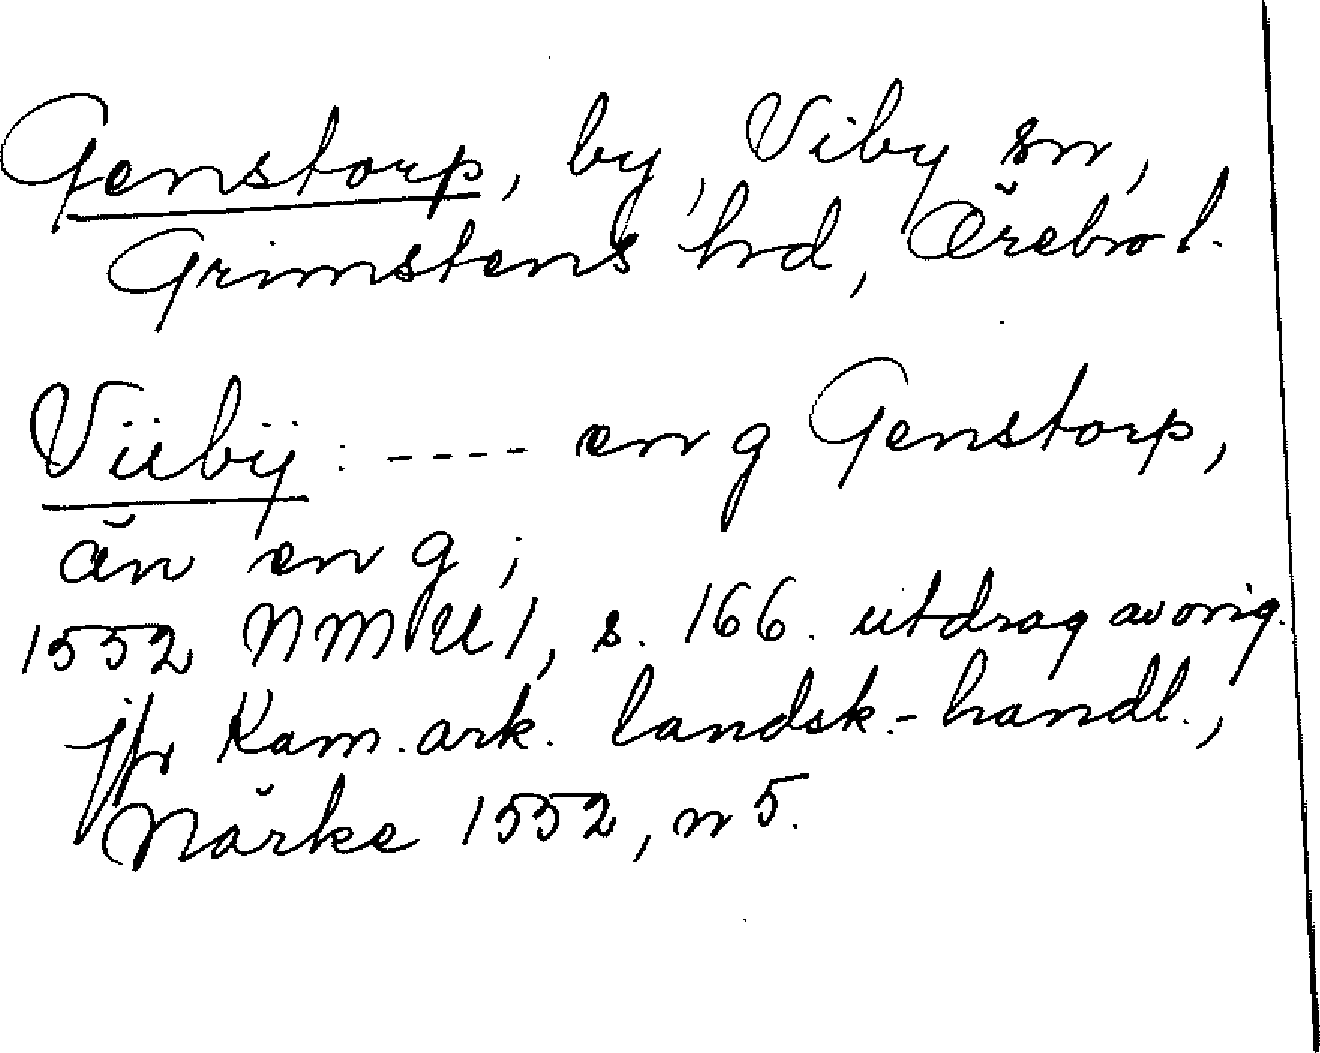 Genstorp, by, Viby sn,
Grimstens hrd, Örebro l.
Viibÿ: ---- en g Genstorp,
än en g;
1552 NMU 1, s. 166. utdrag av orig.
jfr Kam. ark. landsk.-handl.,
Närke 1552, nr 5.